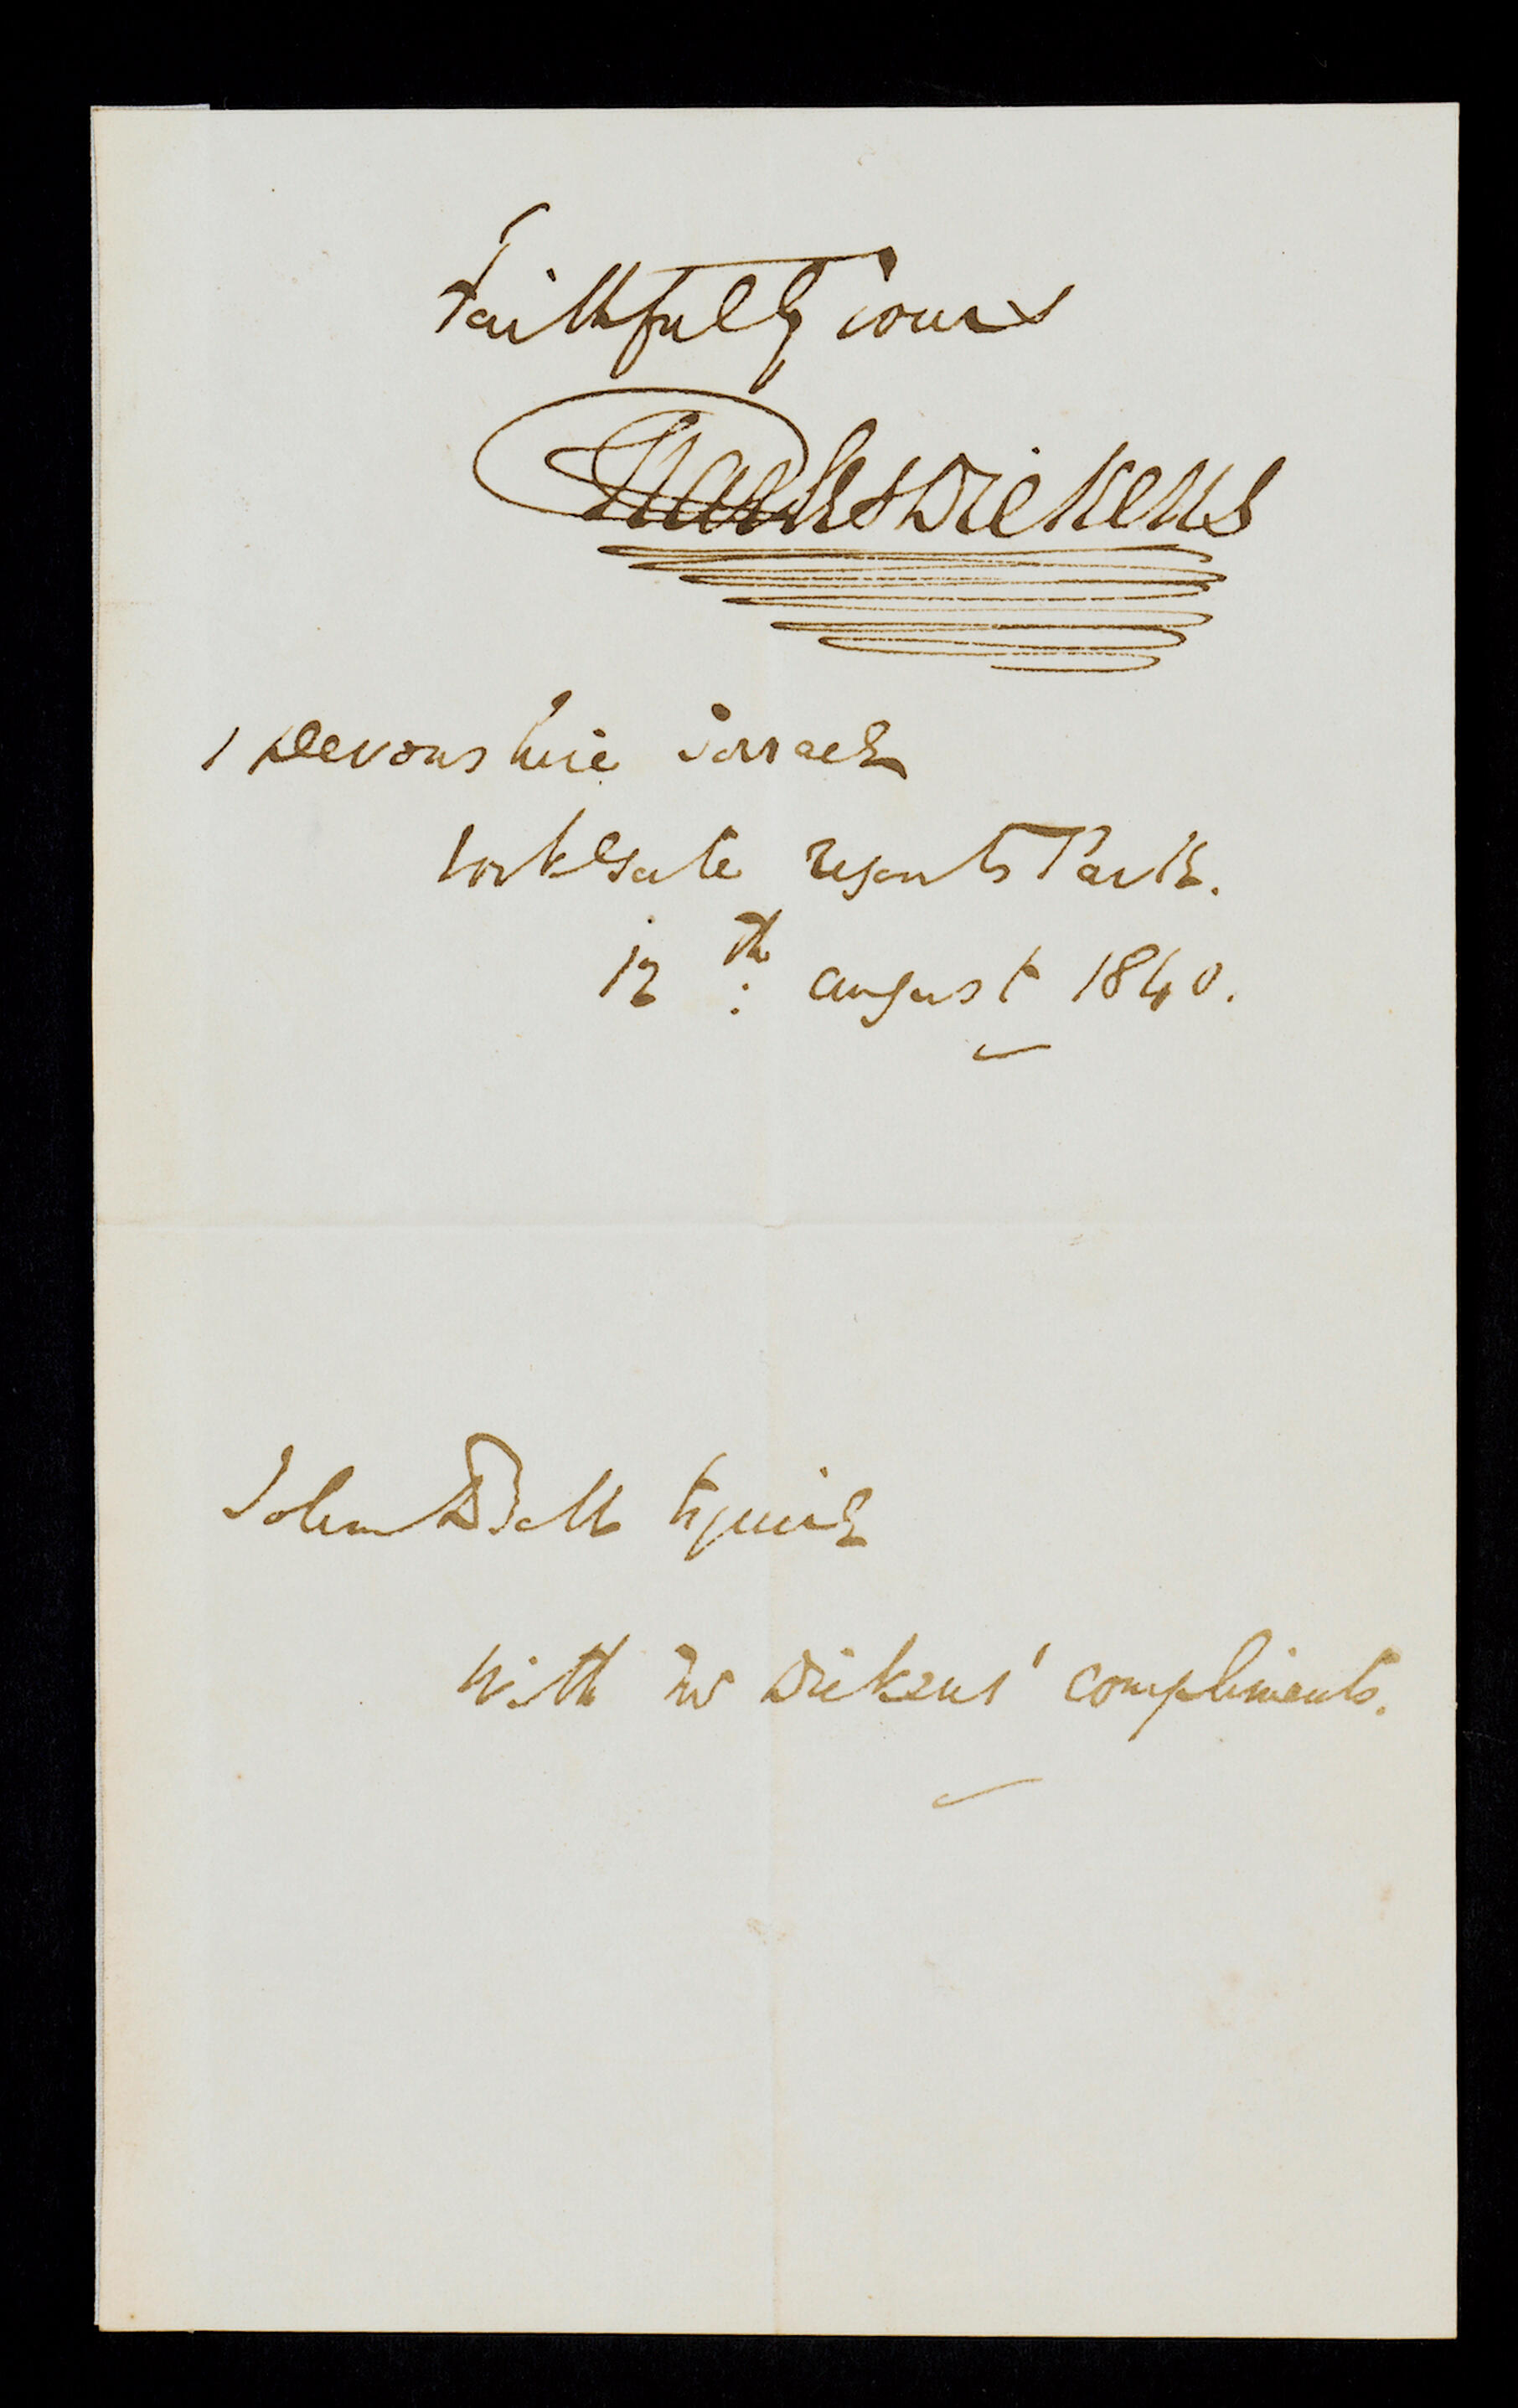 Faithfully Yours
Charles Dickens
1 Devonshire Terrace
York Gate Regents Park.
12th. August 1840.
John Esquire
With Mr Dickens' compliments.